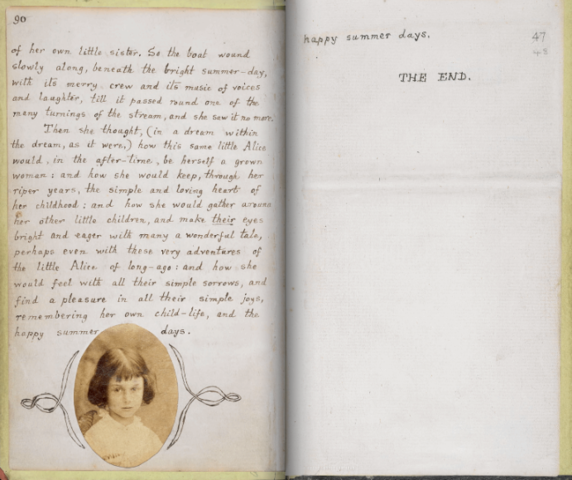 90
of her own little sister. So the boat wound
slowly along, beneath the bright summer-day,
with its merry crew and its music of voices
and laughter, till it passed round one of the
many turnings of the stream, and she saw it no more.
Then she thought, (in a dream within
the dream, as it were,) how this same little Alice
would, in the after-time, be herself a grown
woman: and how she would keep, through her
riper years, the simple and loving heart of
her childhood: and how she would gather around
her other little children, and make their eyes
bright and eager with many a wonderful tale,
perhaps even with these very adventures of
the little Alice of long-ago: and how she
would feel with all their simple sorrows, and
find a pleasure in all their simple joys,
remembering her own child-life, and the
happy summer days.
happy summer days.
47
48
THE END.